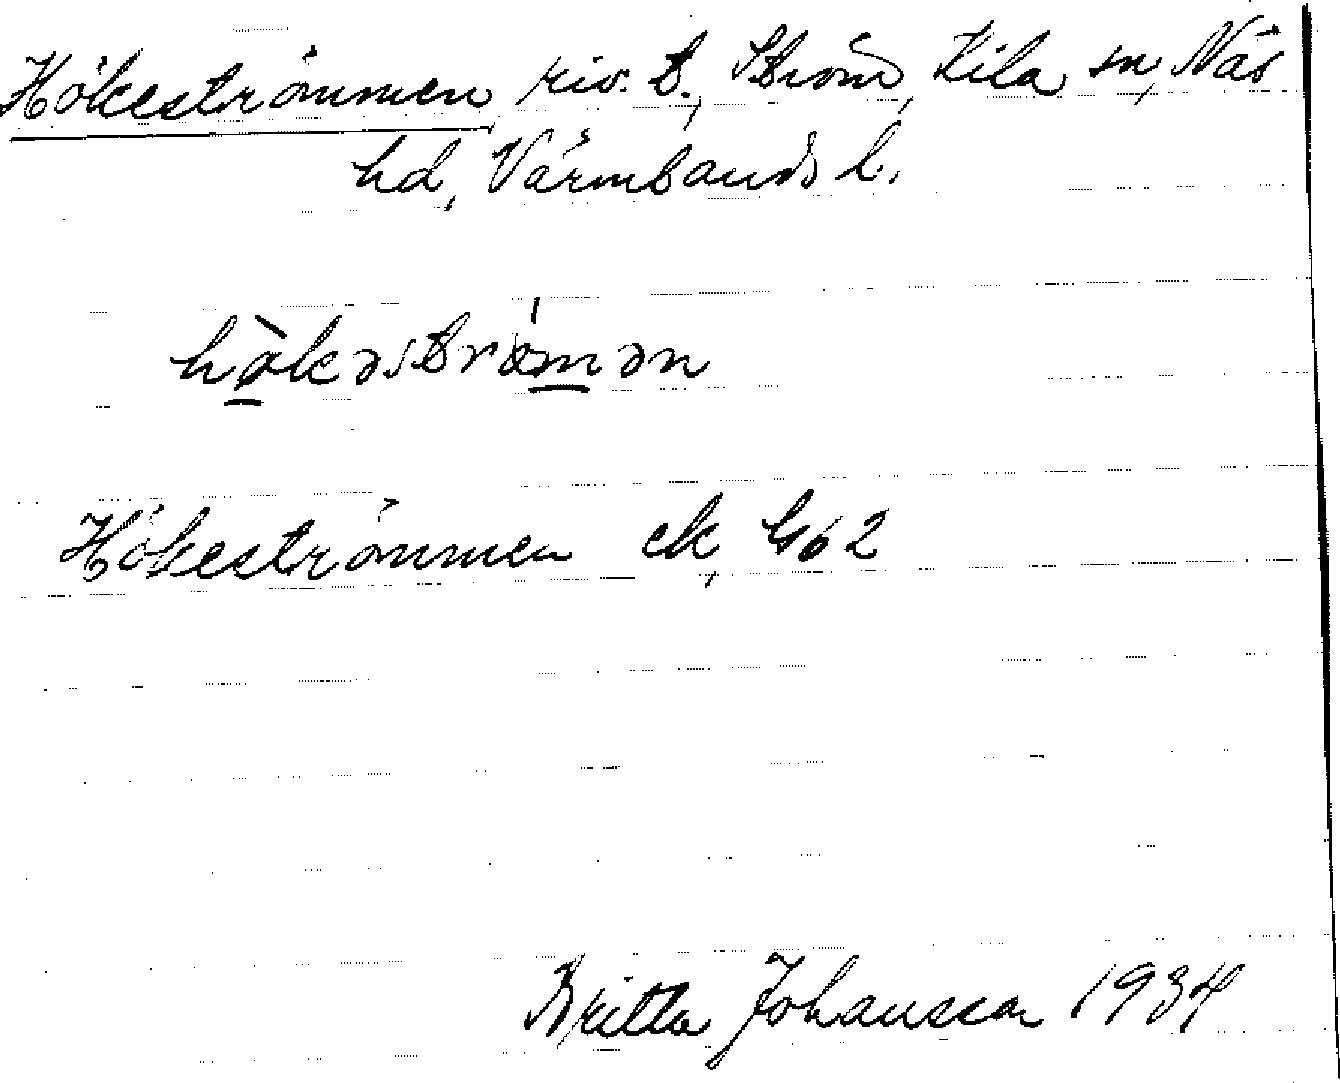 Hökeströmmen riv. t., Ström, Kila sn, Näs
hd, Värmlands l.
hökəströmən
Hökeströmmen ek,
Britta Johansson 1934